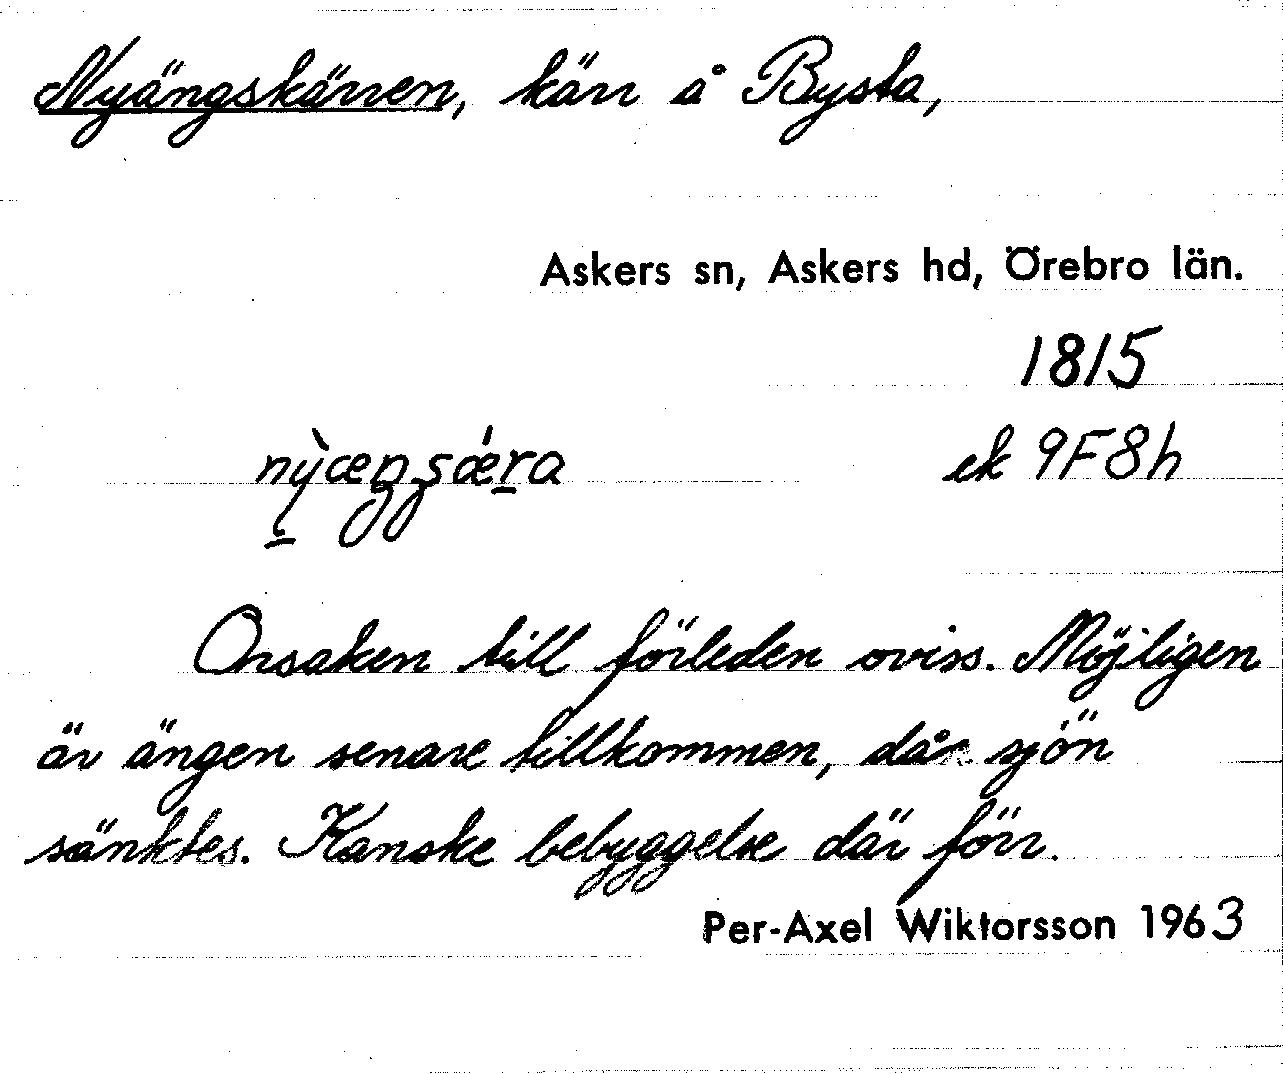 Nyängskärren, kärr å Bysta,
Askers sn, Askers hd, Örebro län.
1815
ek 9F8h
Orsaken till förleden oviss. Möjligen
är ängen senare tillkommen, då sjön
sänktes. Kanske bebyggelse där förr.
Per-Axel Wiktorsson 1963